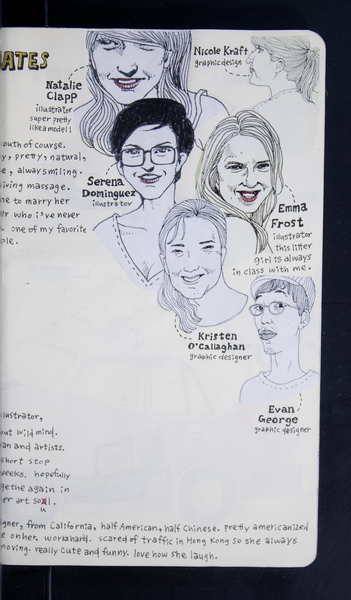 MATES
Natalie
Clapp
illustrator
super pretty
like a model!
Nicole Kraft
graphic design
outh of course.
y, pretty, natural,
e, always smiling.
iving massage.
ne to marry her
er who i've never
. one of my favorite
ple.
Serena
Dominguez
illustrator
Emma
Frost
illustrator
this litter
girl is always
in class with me.
Kristen
O'Callaghan
graphic designer
Evan
George
graphic designer
lustrator,
out wild mind.
an and artists.
short stop
weeks. hopefully
gethe again in
er art soul.
igner, from California, half American, half Chinese. pretty americanized
e onher. workhard. scared of traffic in Hong Kong so she always
moving. really cute and funny. love how she laugh.